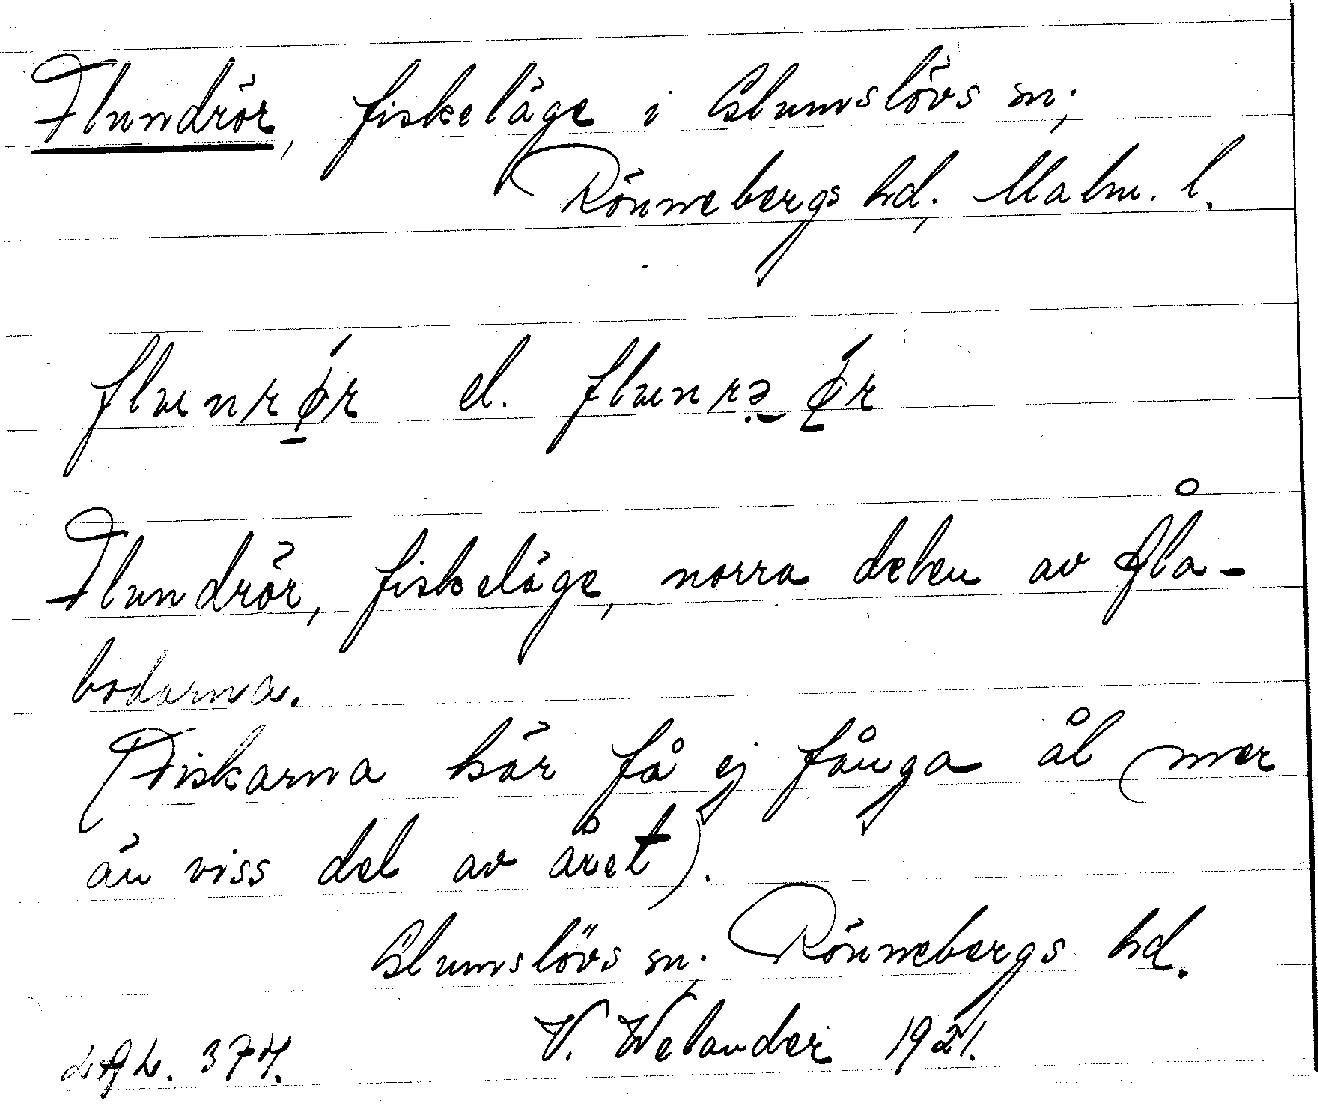 Flundrör, fiskeläge i Glumslövs sn;
Rönnebergs hd, Malm. l.
flunrǿr el. flunrə ǿr
Flundrör, fiskeläge, norra delen av Åla-
bodarna.
(Fiskarna här få ej fånga ål mer
än viss del av året).
Glumslövs sn. Rönnebergs hd.
V. Welander 1921.